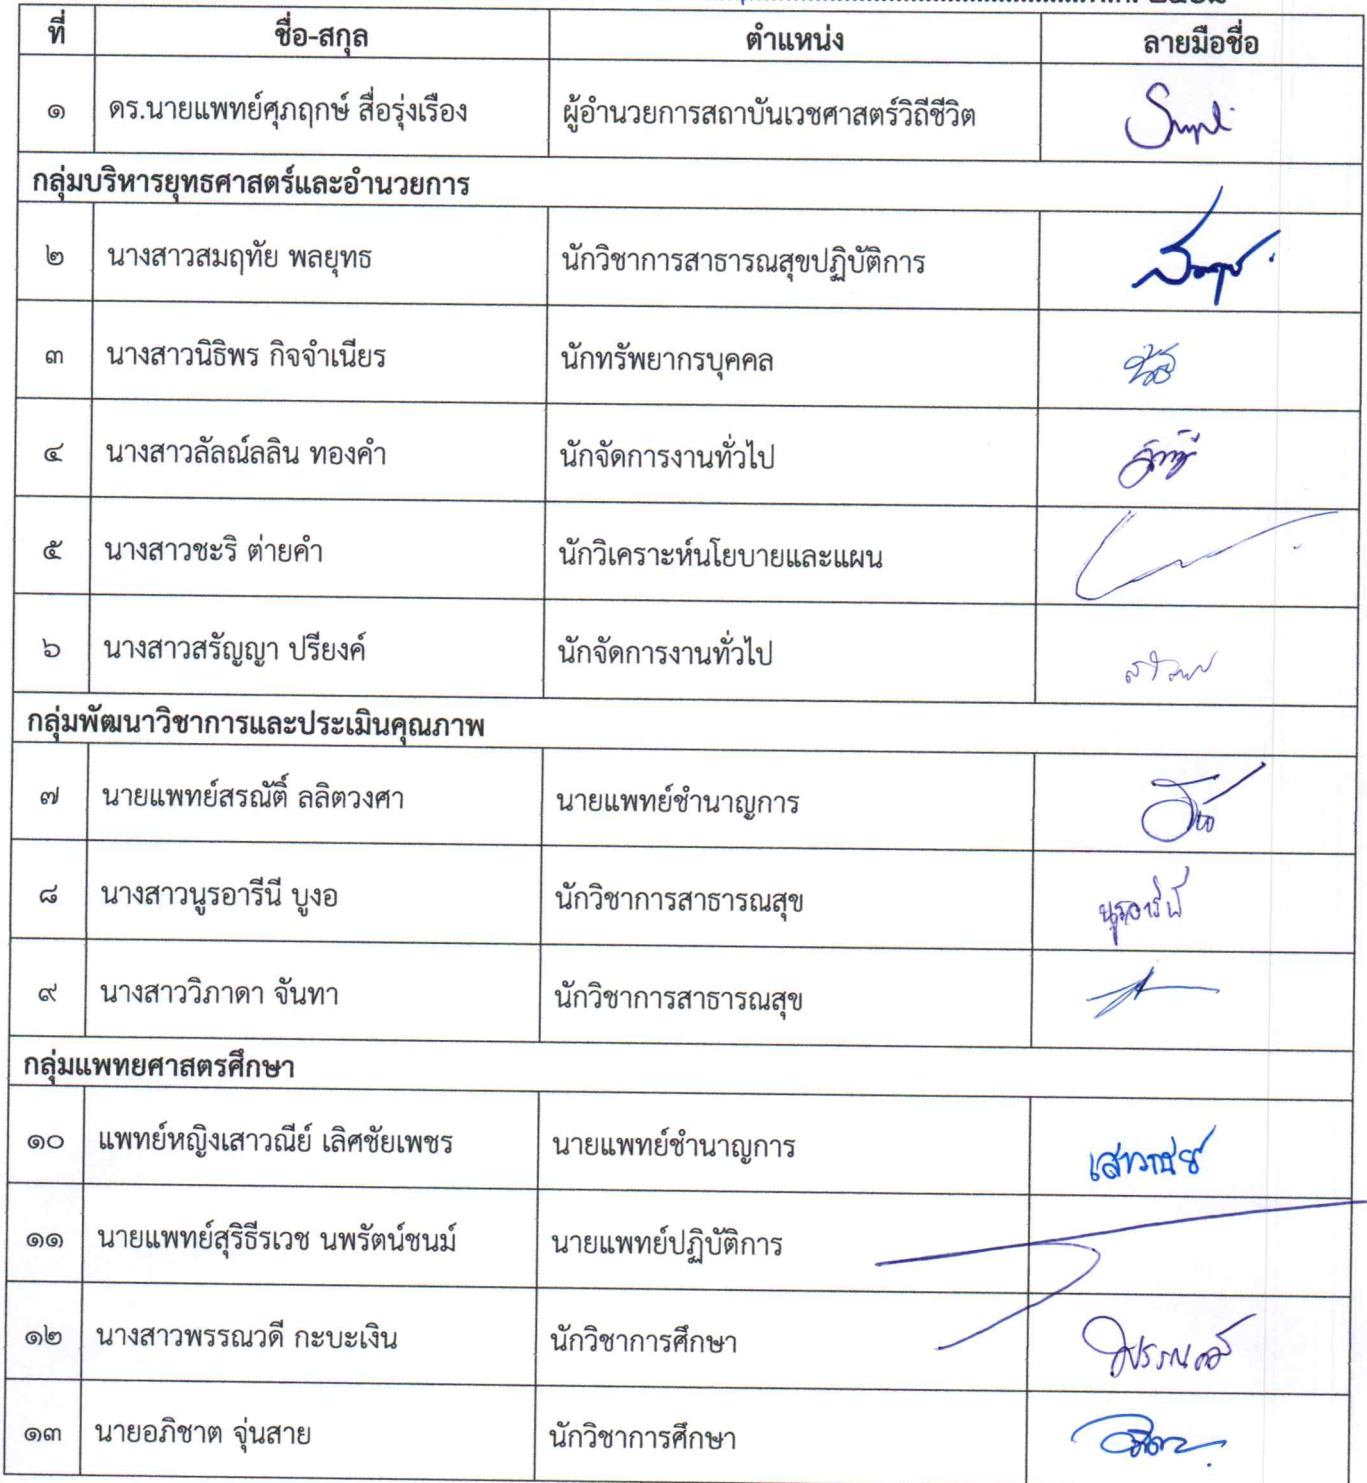 ที่ ชื่อ-สกุล ตำแหน่ง ลายมือชื่อ
๑ ดร.นายแพทย์ศุภฤกษ์ สื่อรุ่งเรือง ผู้อำนวยการสถาบันเวชศาสตร์วิถีชีวิต
กลุ่มบริหารยุทธศาสตร์และอำนวยการ
๒ นางสาวสมฤทัย พลยุทธ นักวิชาการสาธารณสุขปฏิบัติการ
๓ นางสาวนิธิพร กิจจำเนียร นักทรัพยากรบุคคล
๔ นางสาวลัลณ์ลลิน ทองคำ นักจัดการงานทั่วไป
๕ นางสาวชะริ ต่ายคำ นักวิเคราะห์นโยบายและแผน
๖ นางสาวสรัญญา ปรียงค์ นักจัดการงานทั่วไป
กลุ่มพัฒนาวิชาการและประเมินคุณภาพ
๗ นายแพทย์สรณัติ์ ลลิตวงศา นายแพทย์ชำนาญการ
๘ นางสาวนูรอารีนี บูงอ นักวิชาการสาธารณสุข นูรอารีนี
๙ นางสาววิภาดา จันทา นักวิชาการสาธารณสุข
กลุ่มแพทยศาสตรศึกษา
๑๐ แพทย์หญิงเสาวณีย์ เลิศชัยเพชร นายแพทย์ชำนาญการ เสาวณีย์
๑๑ นายแพทย์สุริธีรเวช นพรัตน์ชนม์ นายแพทย์ปฏิบัติการ
๑๒ นางสาวพรรณวดี กะบะเงิน นักวิชาการศึกษา พรรณวดี
๑๓ นายอภิชาต จุ่นสาย นักวิชาการศึกษา